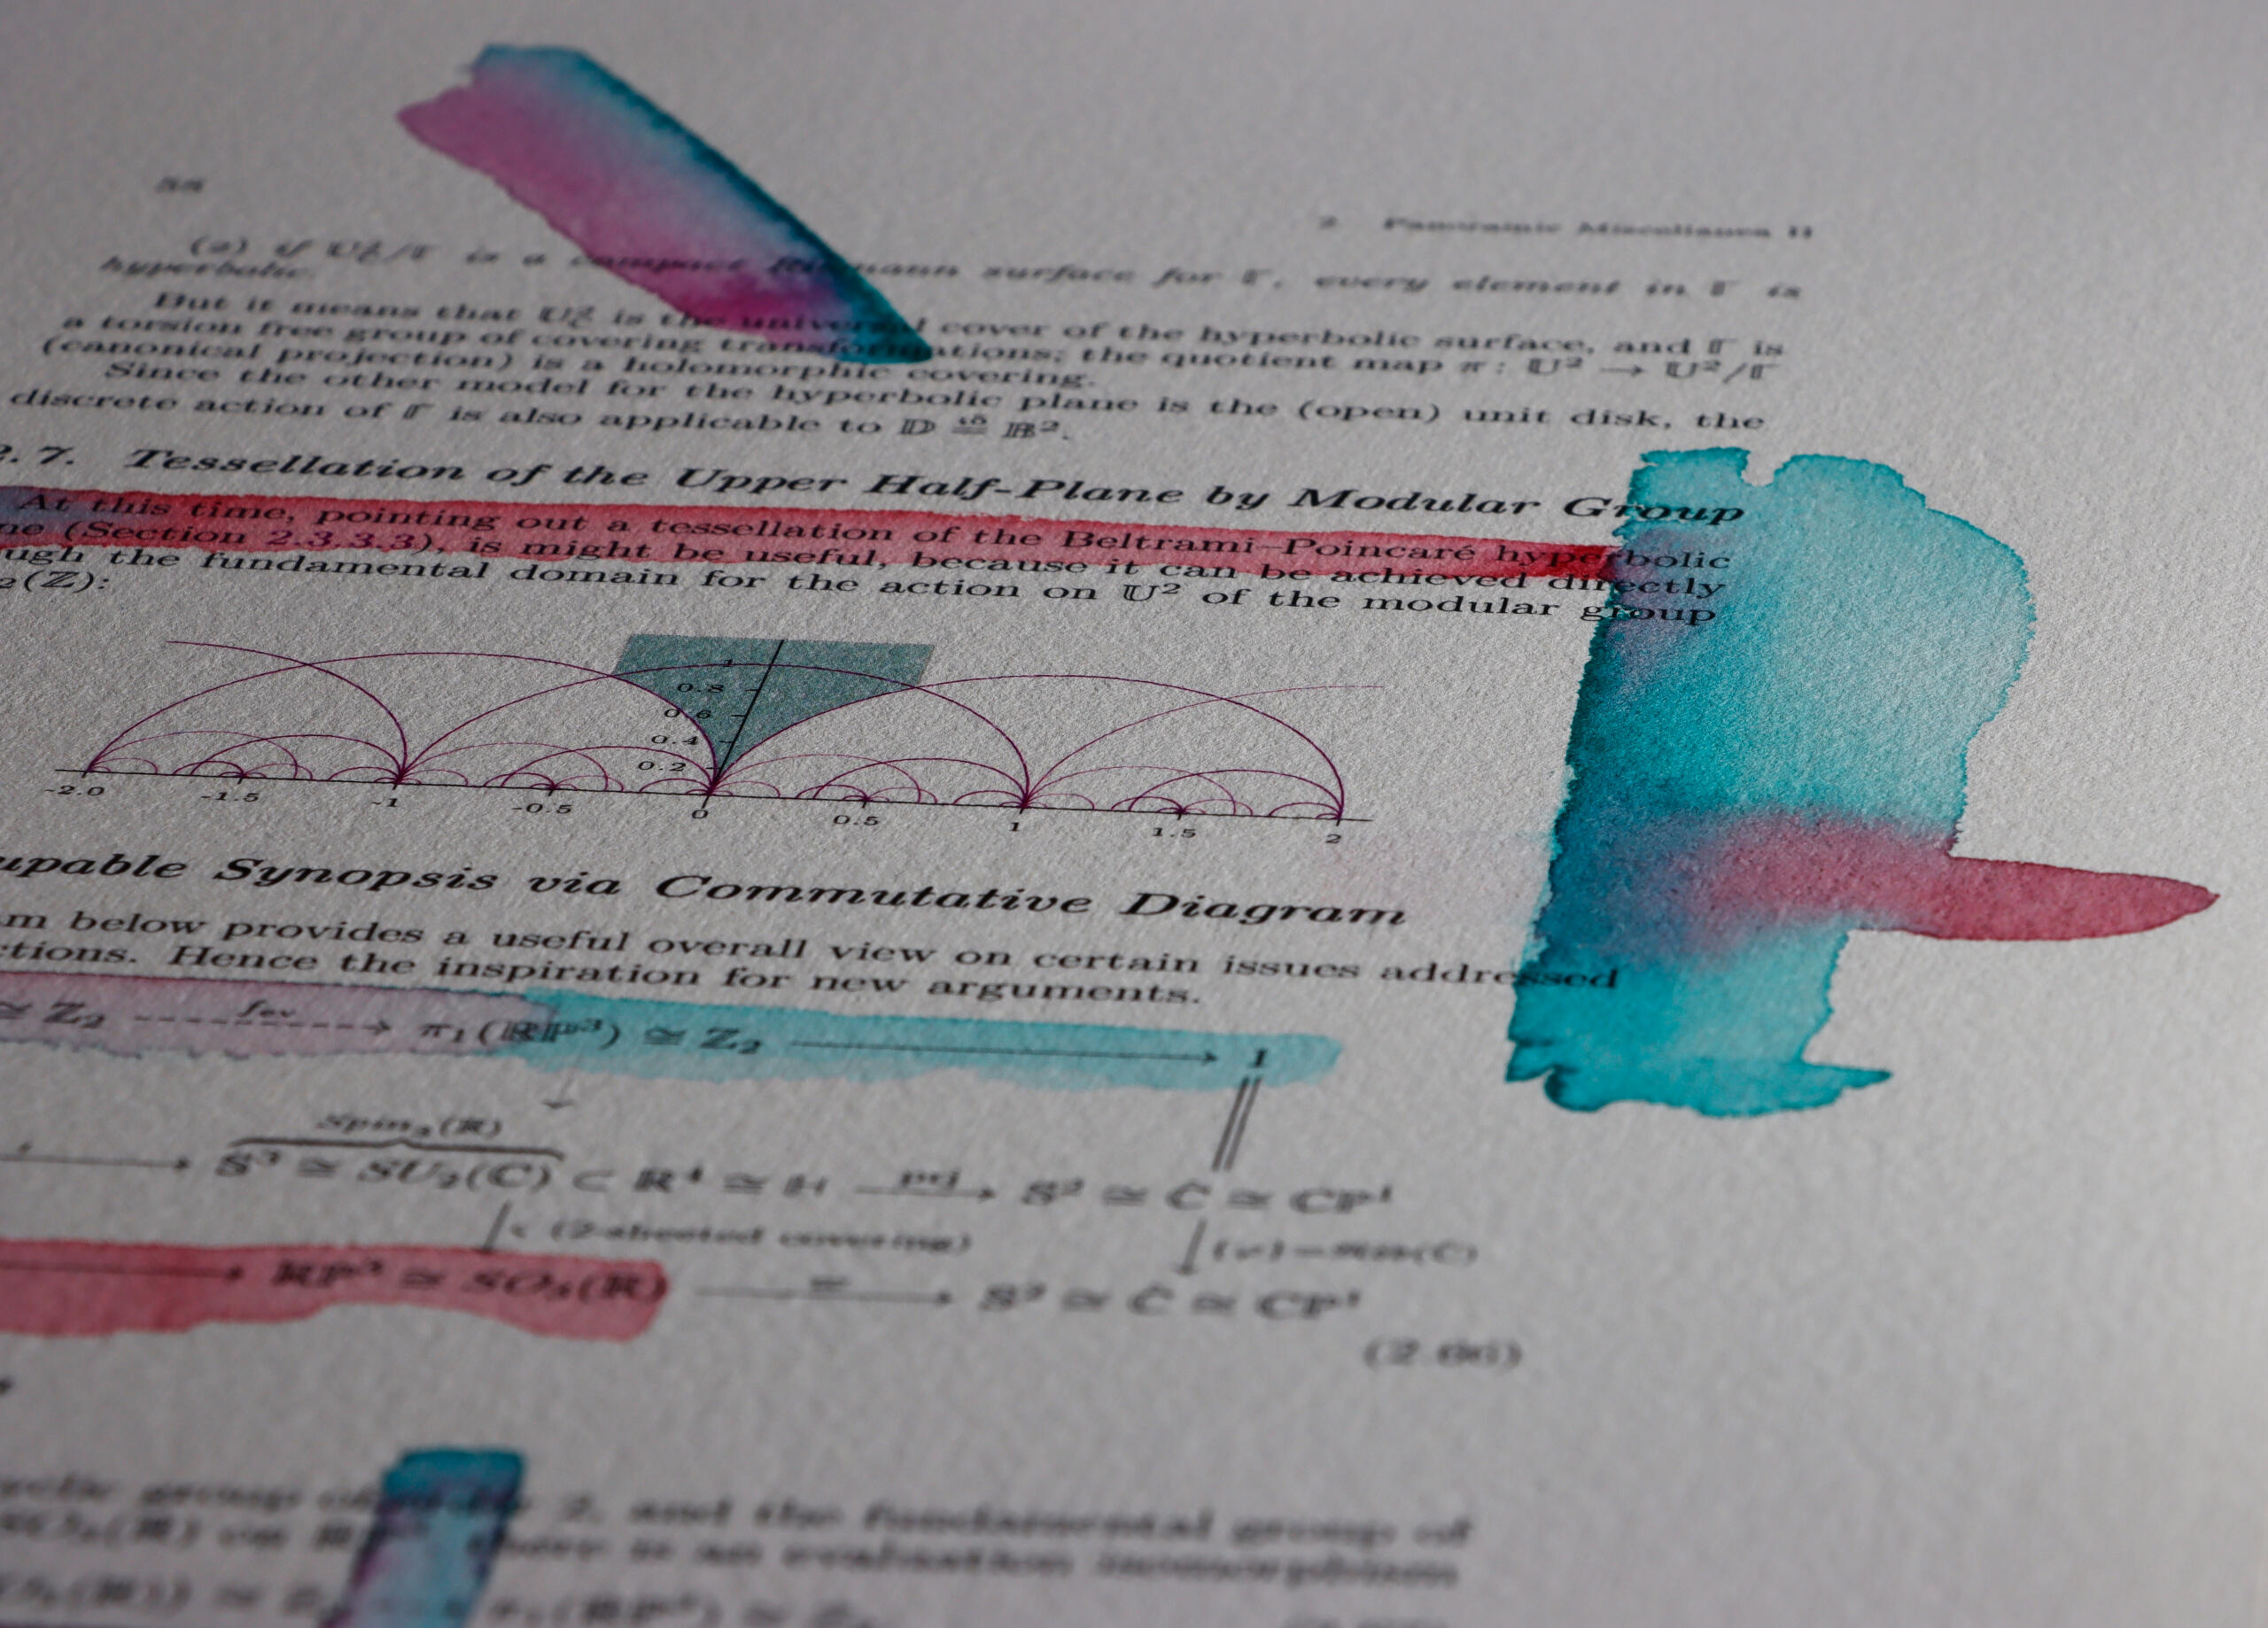 2 Panoramic Miscellanea II
(2) if U²/Γ is a compact Riemann surface for Γ, every element in Γ is
hyperbolic.
But it means that U² is the universal cover of the hyperbolic surface, and Γ is
a torsion free group of covering transformations; the quotient map π : U² → U²/Γ
(canonical projection) is a holomorphic covering.
Since the other model for the hyperbolic plane is the (open) unit disk, the
discrete action of Γ is also applicable to 𝔻
2.7. Tessellation of the Upper Half-Plane by Modular Group
At this time, pointing out a tessellation of the Beltrami–Poincaré hyperbolic
ne (Section 2.3.3.3), is might be useful, because it can be achieved directly
ugh the fundamental domain for the action on U² of the modular group
₂(Z):
1
0.8
0.6
0.4
0.2
-2.0 -1.5 -1 -0.5 0 0.5 1 1.5 2
upable Synopsis via Commutative Diagram
m below provides a useful overall view on certain issues addressed
ctions. Hence the inspiration for new arguments.
≅ Z₂ fev → π₁(ℝP³) ≅ Z₂ → 1
Spin₃(ℝ)
→ S³ ≅ SU₂(ℂ) ⊂ ℝ⁴ ≅ ℍ → S² ≅ Ĉ ≅ ℂP¹
(2-sheeted covering)
→ ℝP³ ≅ SO₃(ℝ) → S² ≅ Ĉ ≅ ℂP¹
(2.66)
2, and the fundamental group of
there is an evaluation isomorphism